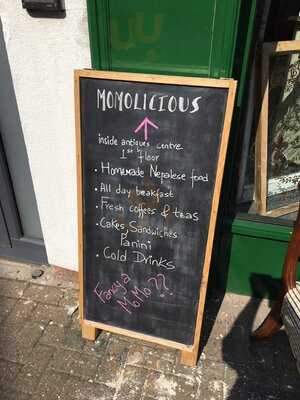 MOMOLICIOUS
inside antiques centre
1st floor
• Homemade Nepalese food
• All day breakfast
• Fresh coffees & teas
• Cakes, Sandwiches
Panini
• Cold Drinks
Fancy a
MoMo??